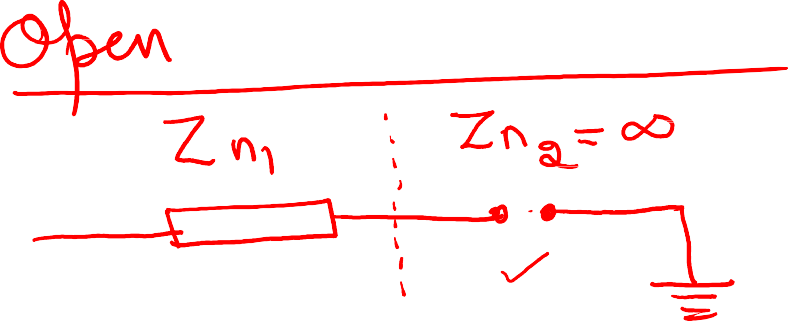 Open
Zn1
Zn2 = ∞